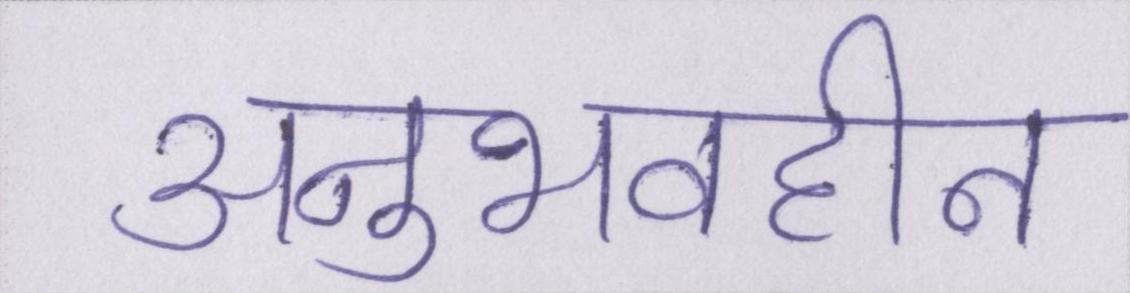 अनुभवहीन